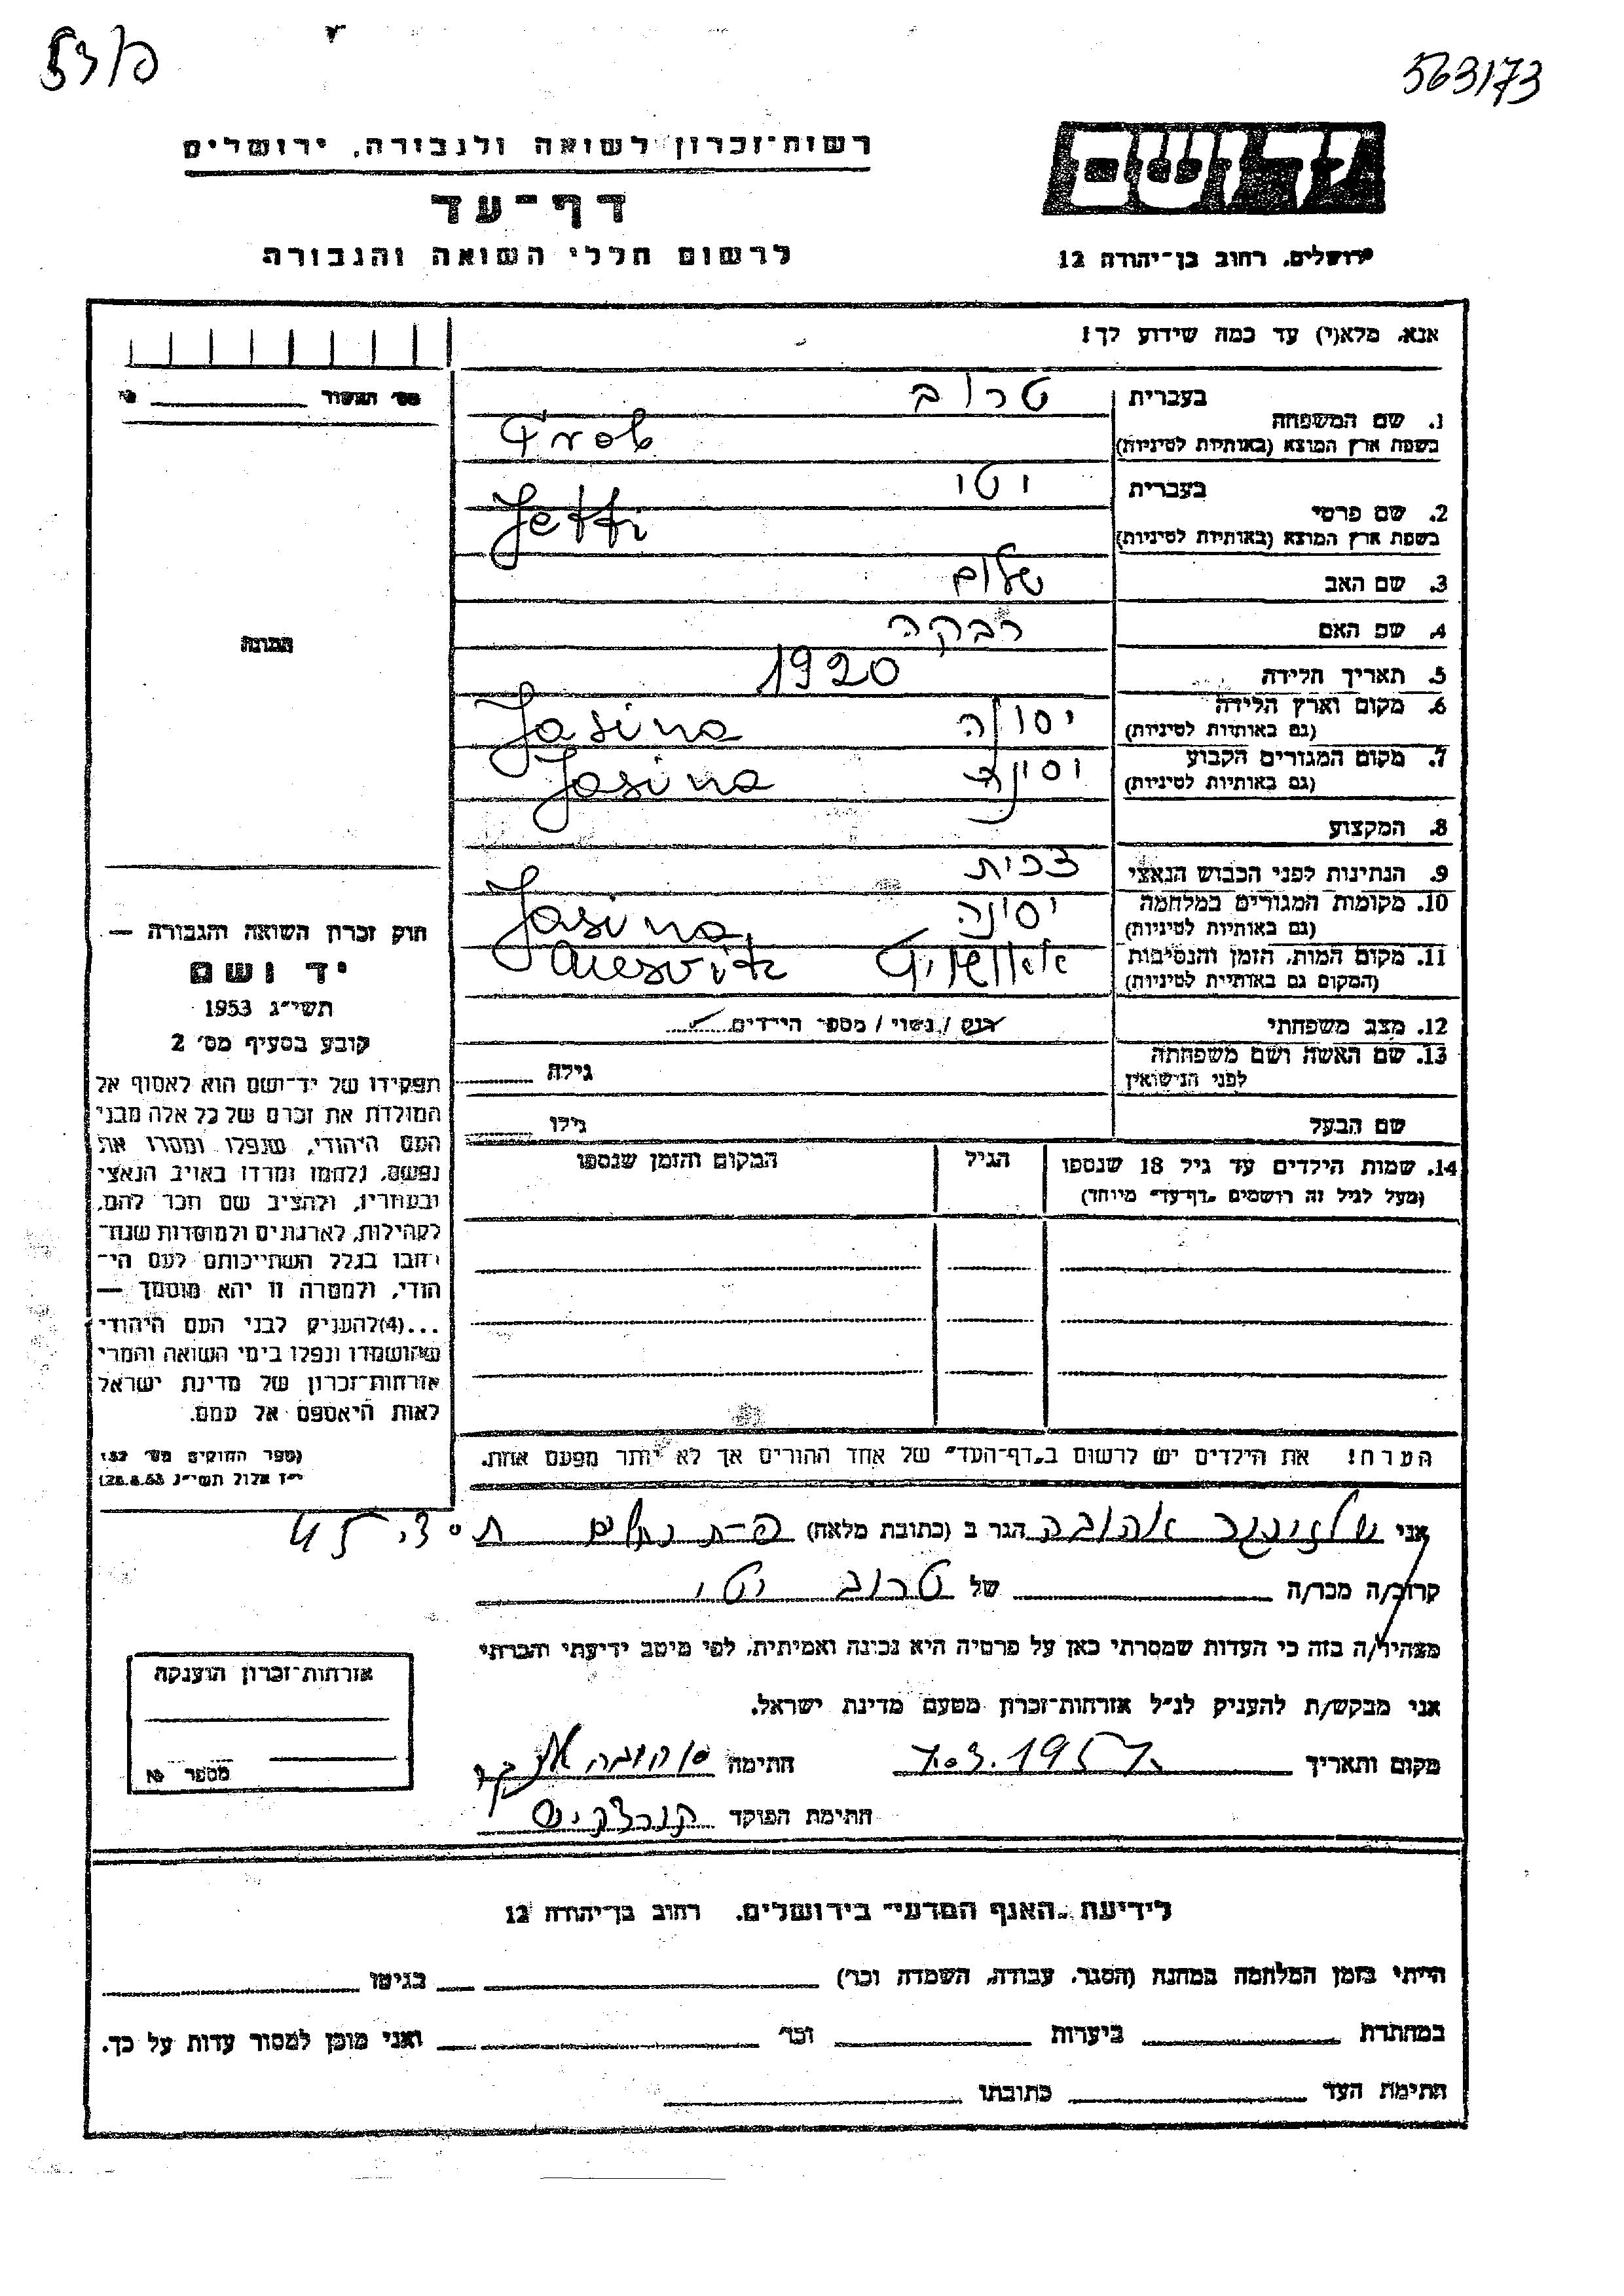 563173
יד ושם
ירושלים, רחוב בן-יהודה 12
רשות-זכרון לשואה ולגבורה, ירושלים
דף-עד
לרשום חללי השואה והגבורה
אנא, מלא(י) עד כמה שידוע לך!
מס' תקשור №
התמונה
1. שם המשפחה בעברית טרוב
בשפת ארץ המוצא (באותיות לטיניות) Trob
2. שם פרטי בעברית יטי
בשפת ארץ המוצא (באותיות לטיניות) Jetti
3. שם האב שלום
4. שם האם רבקה
5. תאריך הלידה 1920
6. מקום וארץ הלידה יסינה Jasina
(גם באותיות לטיניות)
7. מקום המגורים הקבוע יסינה Jasina
(גם באותיות לטיניות)
8. המקצוע
9. הנתינות לפני הכבוש הנאצי צכית
10. מקומות המגורים במלחמה יסינה Jasina
(גם באותיות לטיניות)
11. מקום המות, הזמן והנסיבות Auesvitz
(המקום גם באותיות לטיניות)
12. מצב משפחתי רווק / נשוי / מספר הילדים
13. שם האשה ושם משפחתה גילה
לפני הנישואין
שם הבעל גילו
14. שמות הילדים עד גיל 18 שנספו הגיל המקום והזמן שנספו
(מעל לגיל זה רושמים "דף-עד" מיוחד)
הערה! את הילדים יש לרשום ב"דף-העד" של אחד ההורים אך לא יותר מפעם אחת.
חוק זכרון השואה והגבורה —
יד ושם
תשי"ג 1953
קובע בסעיף מס' 2
תפקידו של יד-ושם הוא לאסוף אל
המולדת את זכרם של כל אלה מבני
העם היהודי, שנפלו ומסרו את
נפשם, נלחמו ומרדו באויב הנאצי
ובעוזריו, ולהציב שם וזכר להם,
לקהילות, לארגונים ולמוסדות שנח-
רבו בגלל השתייכותם לעם הי-
הודי, ולמטרה זו יהא מוסמך —
...(4)להעניק לבני העם היהודי
שהושמדו ונפלו בימי השואה והמרי
אזרחות-זכרון של מדינת ישראל
לאות היאספם אל עמם.
(ספר החוקים מס' 132
י"ז אלול תשי"ג 28.8.53)
אני שלזינגר אהובה הגר ב (כתובת מלאה) פ-ת ת.ד. 45
קרוב/ה מכר/ה של טרוב יטי
מצהיר/ה בזה כי העדות שמסרתי כאן על פרטיה היא נכונה ואמיתית, לפי מיטב ידיעתי והכרתי
אני מבקש/ת להעניק לנ"ל אזרחות-זכרון מטעם מדינת ישראל.
מקום ותאריך חתימה
חתימת הפוקד
אזרחות-זכרון הוענקה
מספר №
לידיעת "האגף המדעי" בירושלים, רחוב בן-יהודה 12
הייתי בזמן המלחמה במחנה (הסגר, עבודה, השמדה וכו') בגיטו
במחתרת ביערות וכו' ואני מוכן למסור עדות על כך.
חתימת העד כתובתו